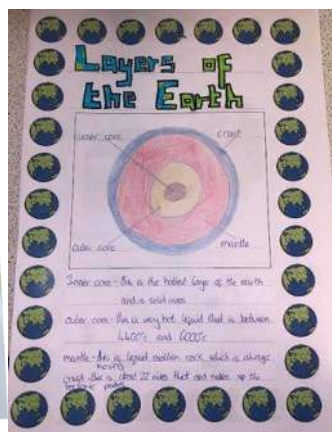 Layers of
the Earth
inner core
crust
outer core
mantle
Inner core - this is the hottest layer of the earth
and is solid
outer core - this is very hot liquid that is between
4400°c and 6000°c
mantle - this is liquid molten rock which is always
moving
crust this is about 22 miles that and makes up the
tectonic plates